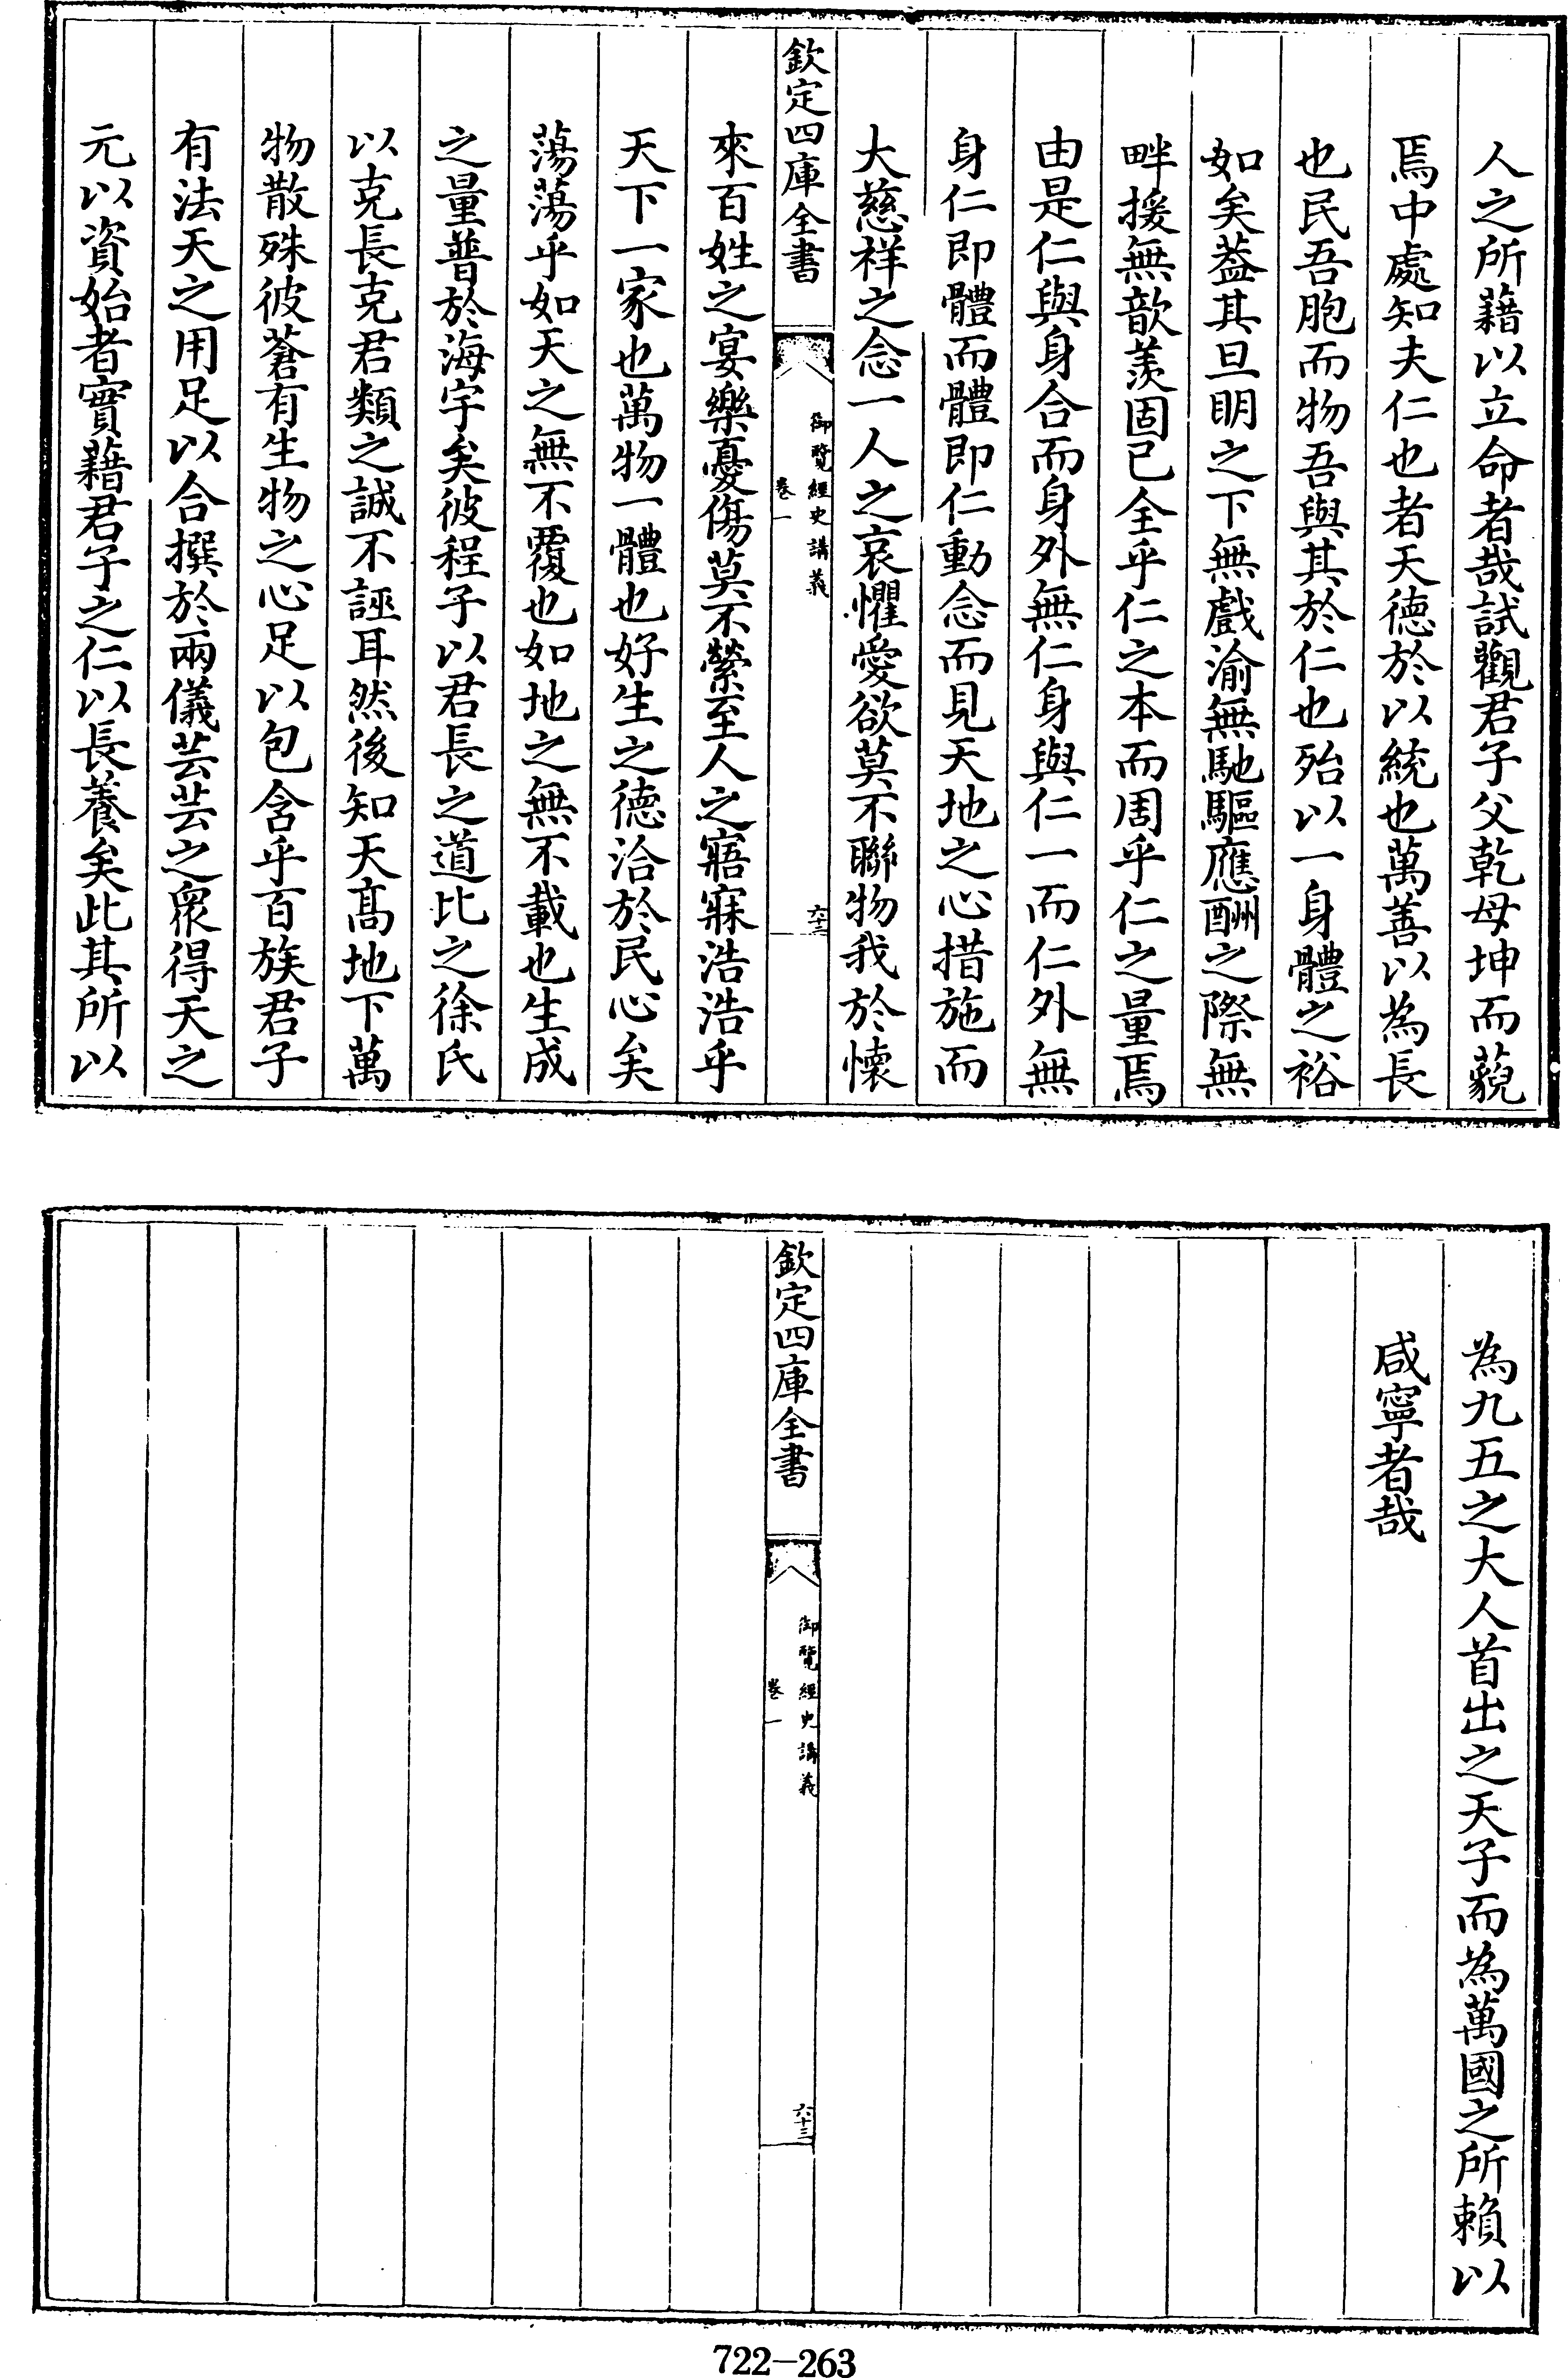 人之所藉以立命者哉試觀君子父乾母坤而藐
焉中處知夫仁也者天德於以統也萬善以為長
也民吾胞而物吾與其於仁也殆以一身體之裕
如矣葢其旦明之下無戲渝無馳驅應酬之際無
畔援無歆羨固已全乎仁之本而周乎仁之量焉
由是仁與身合而身外無仁身與仁一而仁外無
身仁即體而體即仁動念而見天地之心措施而
大慈祥之念一人之哀懼愛欲莫不聯物我於懷
欽定四庫全書
御覽經史講義
卷一
六十二
來百姓之宴樂憂傷莫不縈至人之寤寐浩浩乎
天下一家也萬物一體也好生之德洽於民心矣
蕩蕩乎如天之無不覆也如地之無不載也生成
之量普於海宇矣彼程子以君長之道比之徐氏
以克長克君類之誠不誣耳然後知天髙地下萬
物散殊彼蒼有生物之心足以包含乎百族君子
有法天之用足以合撰於兩儀芸芸之衆得天之
元以資始者實藉君子之仁以長養矣此其所以
為九五之大人首出之天子而為萬國之所賴以
咸寧者哉
欽定四庫全書
御覽經史講義
卷一
六十三
722-263